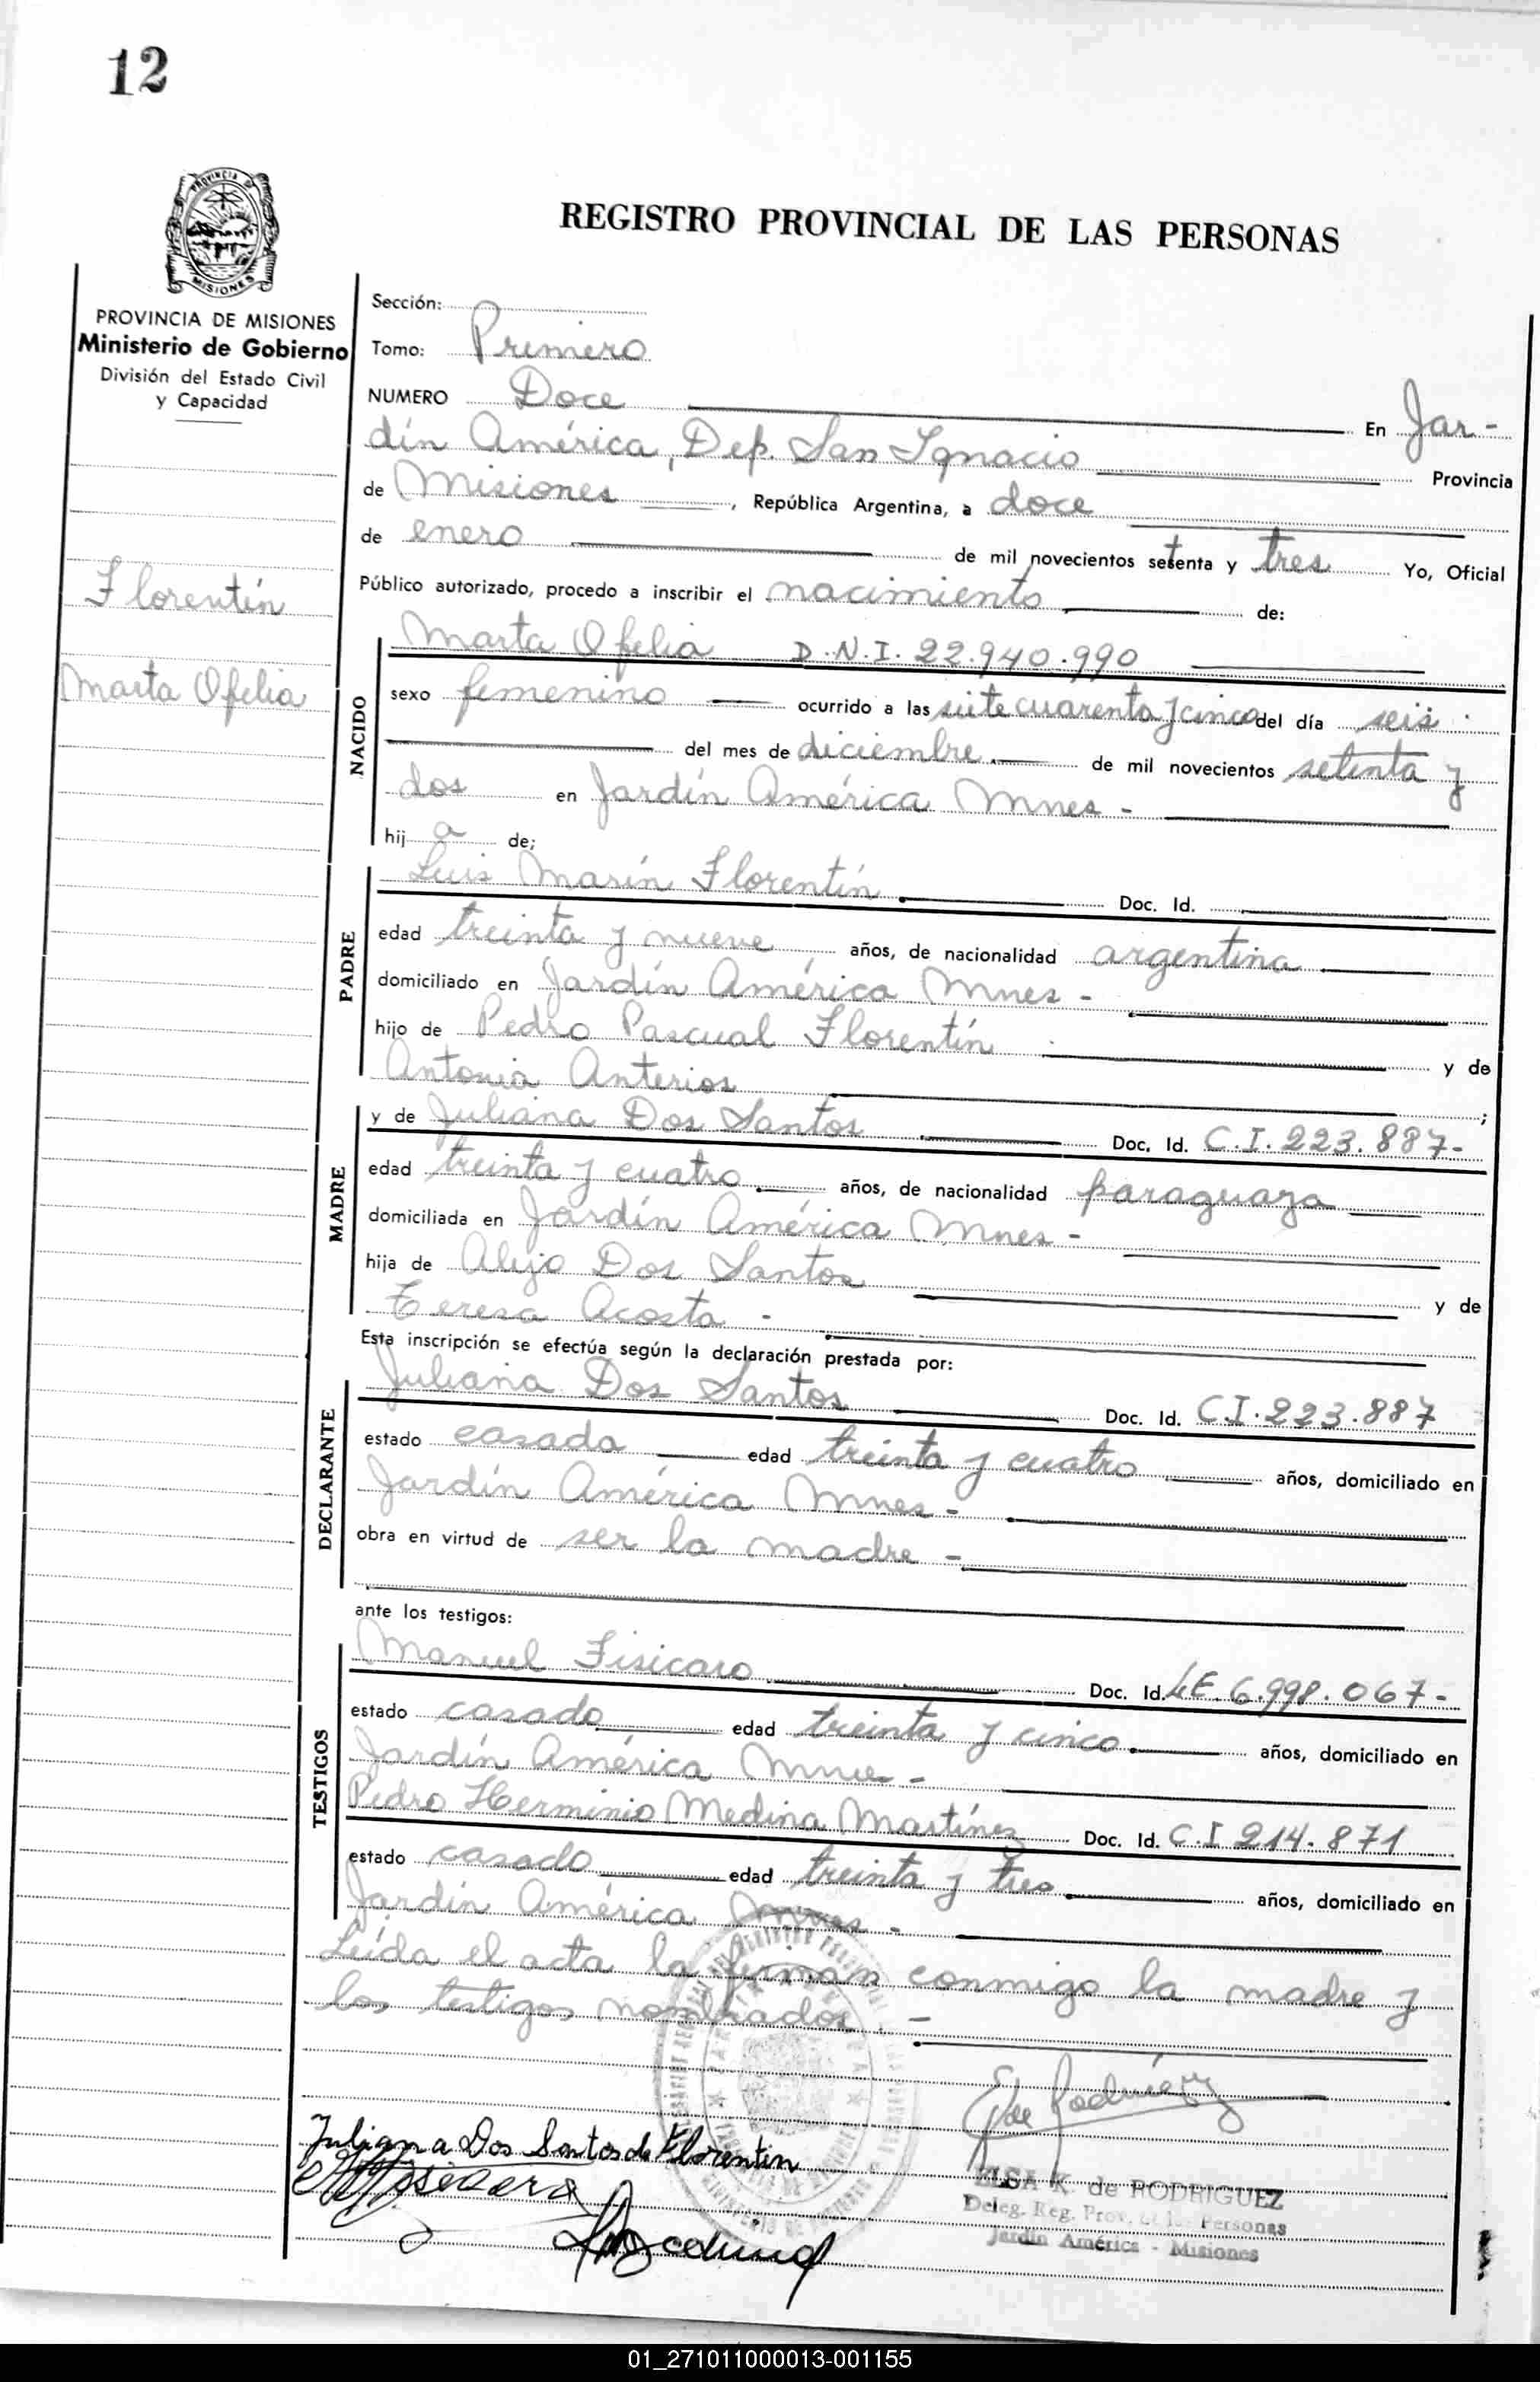 12
REGISTRO PROVINCIAL DE LAS PERSONAS
PROVINCIA DE MISIONES
Ministerio de Gobierno
División del Estado Civil
y Capacidad
Florentín
Marta Ofelia
Sección:
Tomo: Primero
NUMERO Doce En Jar-
dín América, Dep. San Ignacio Provincia
de Misiones, República Argentina, a doce
de enero de mil novecientos setenta y tres Yo, Oficial
Público autorizado, procedo a inscribir el nacimiento de:
NACIDO
Marta Ofelia D.N.I. 22.940.990
sexo femenino ocurrido a las siete cuarenta y cinco del día seis
del mes de diciembre de mil novecientos setenta y
dos en Jardín América Mnes -
hij a de;
PADRE
Luis Marín Florentín Doc. Id.
edad treinta y nueve años, de nacionalidad argentina
domiciliado en Jardín América Mnes -
hijo de Pedro Pascual Florentín y de
Antonia Anterios ;
MADRE
y de Juliana Dos Santos Doc. Id. C.I. 223.887-
edad treinta y cuatro años, de nacionalidad paraguaya
domiciliada en Jardín América Mnes -
hija de Alejo Dos Santos y de
Teresa Acosta -
Esta inscripción se efectúa según la declaración prestada por:
DECLARANTE
Juliana Dos Santos Doc. Id. C.I. 223.887
estado casada edad treinta y cuatro años, domiciliado en
Jardín América Mnes -
obra en virtud de ser la madre -
ante los testigos:
TESTIGOS
Manuel Fisicaro Doc. Id. LE. 6.998.067-
estado casado edad treinta y cinco años, domiciliado en
Jardín América Mnes -
Pedro Herminio Medina Martínez Doc. Id. C.I 214.871
estado casado edad treinta y tres años, domiciliado en
Jardín América Mnes -
Leída el acta la firman conmigo la madre y
los testigos nombrados. -
Juliana Dos Santos de Florentin
E de Rodríguez
ELSA K. de RODRIGUEZ
Deleg. Reg. Prov. de las Personas
Jardín América - Misiones
01_271011000013-001155